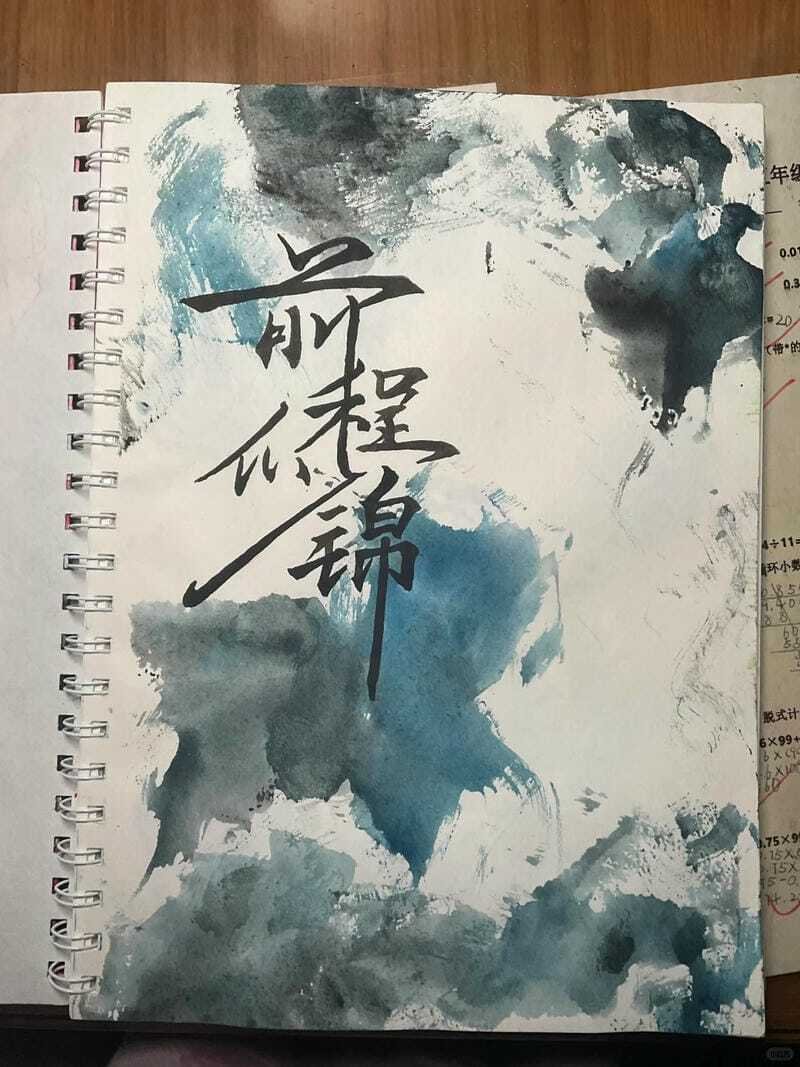 前程似锦
年级
0.01
0.3
=20
(带*的
4÷11=
循环小数
脱式计
6×99+
3.75×9